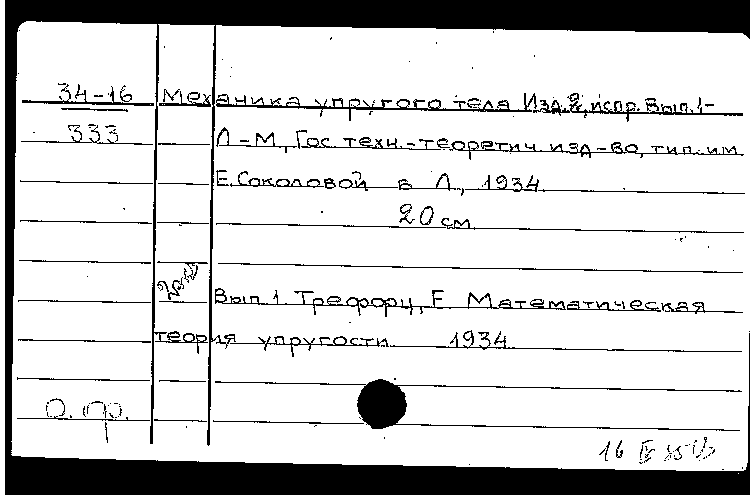 34-16 Механика упругого тела Изд.2, испр. Вып.1-
333 Л-М, Гос. техн.-теоретич. изд-во, тип. им.
Е. Соколовой в Л., 1934.
20 см.
Вып. 1. Трефорц, Е. Математическая
теория упругости. 1934.
О. пр.
16 IX 55